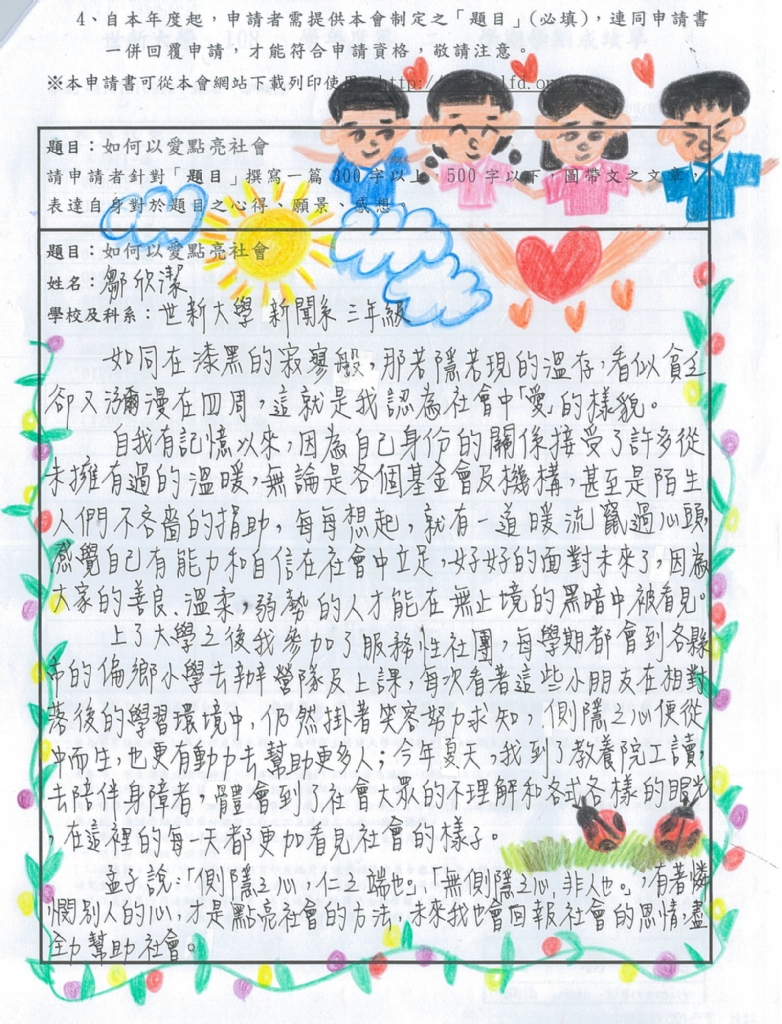 4、自本年度起，申請者需提供本會制定之「題目」(必填)，連同申請書
一併回覆申請，才能符合申請資格，敬請注意。
※本申請書可從本會網站下載列印使用 http://
題目：如何以愛點亮社會
請申請者針對「題目」撰寫一篇 300 字以上，500 字以下，圖帶文之文章，
表達自身對於題目之心得、願景、感想。
題目：如何以愛點亮社會
姓名：鄒欣潔
學校及科系：世新大學 新聞系 三年級
如同在漆黑的寂寥般，那若隱若現的溫存，看似貧乏
卻又瀰漫在四周，這就是我認為社會中「愛」的樣貌。
自我有記憶以來，因為自己身份的關係接受了許多從
未擁有過的溫暖，無論是各個基金會及機構，甚至是陌生
人們不吝嗇的捐助，每每想起，就有一道暖流竄過心頭，
感覺自己有能力和自信在社會中立足，好好的面對未來了，因為
大家的善良、溫柔，弱勢的人才能在無止境的黑暗中被看見。
上了大學之後我參加了服務性社團，每學期都會到各縣
市的偏鄉小學去辦營隊及上課，每次看著這些小朋友在相對
落後的學習環境中，仍然掛著笑容努力求知，惻隱之心便從
中而生，也更有動力去幫助更多人；今年夏天，我到了教養院工讀，
去陪伴身障者，體會到了社會大眾的不理解和各式各樣的眼光
，在這裡的每一天都更加看見社會的樣子。
孟子說：「惻隱之心，仁之端也」、「無惻隱之心，非人也。」，有著憐
憫別人的心，才是點亮社會的方法，未來我也會回報社會的恩情，盡
全力幫助社會。